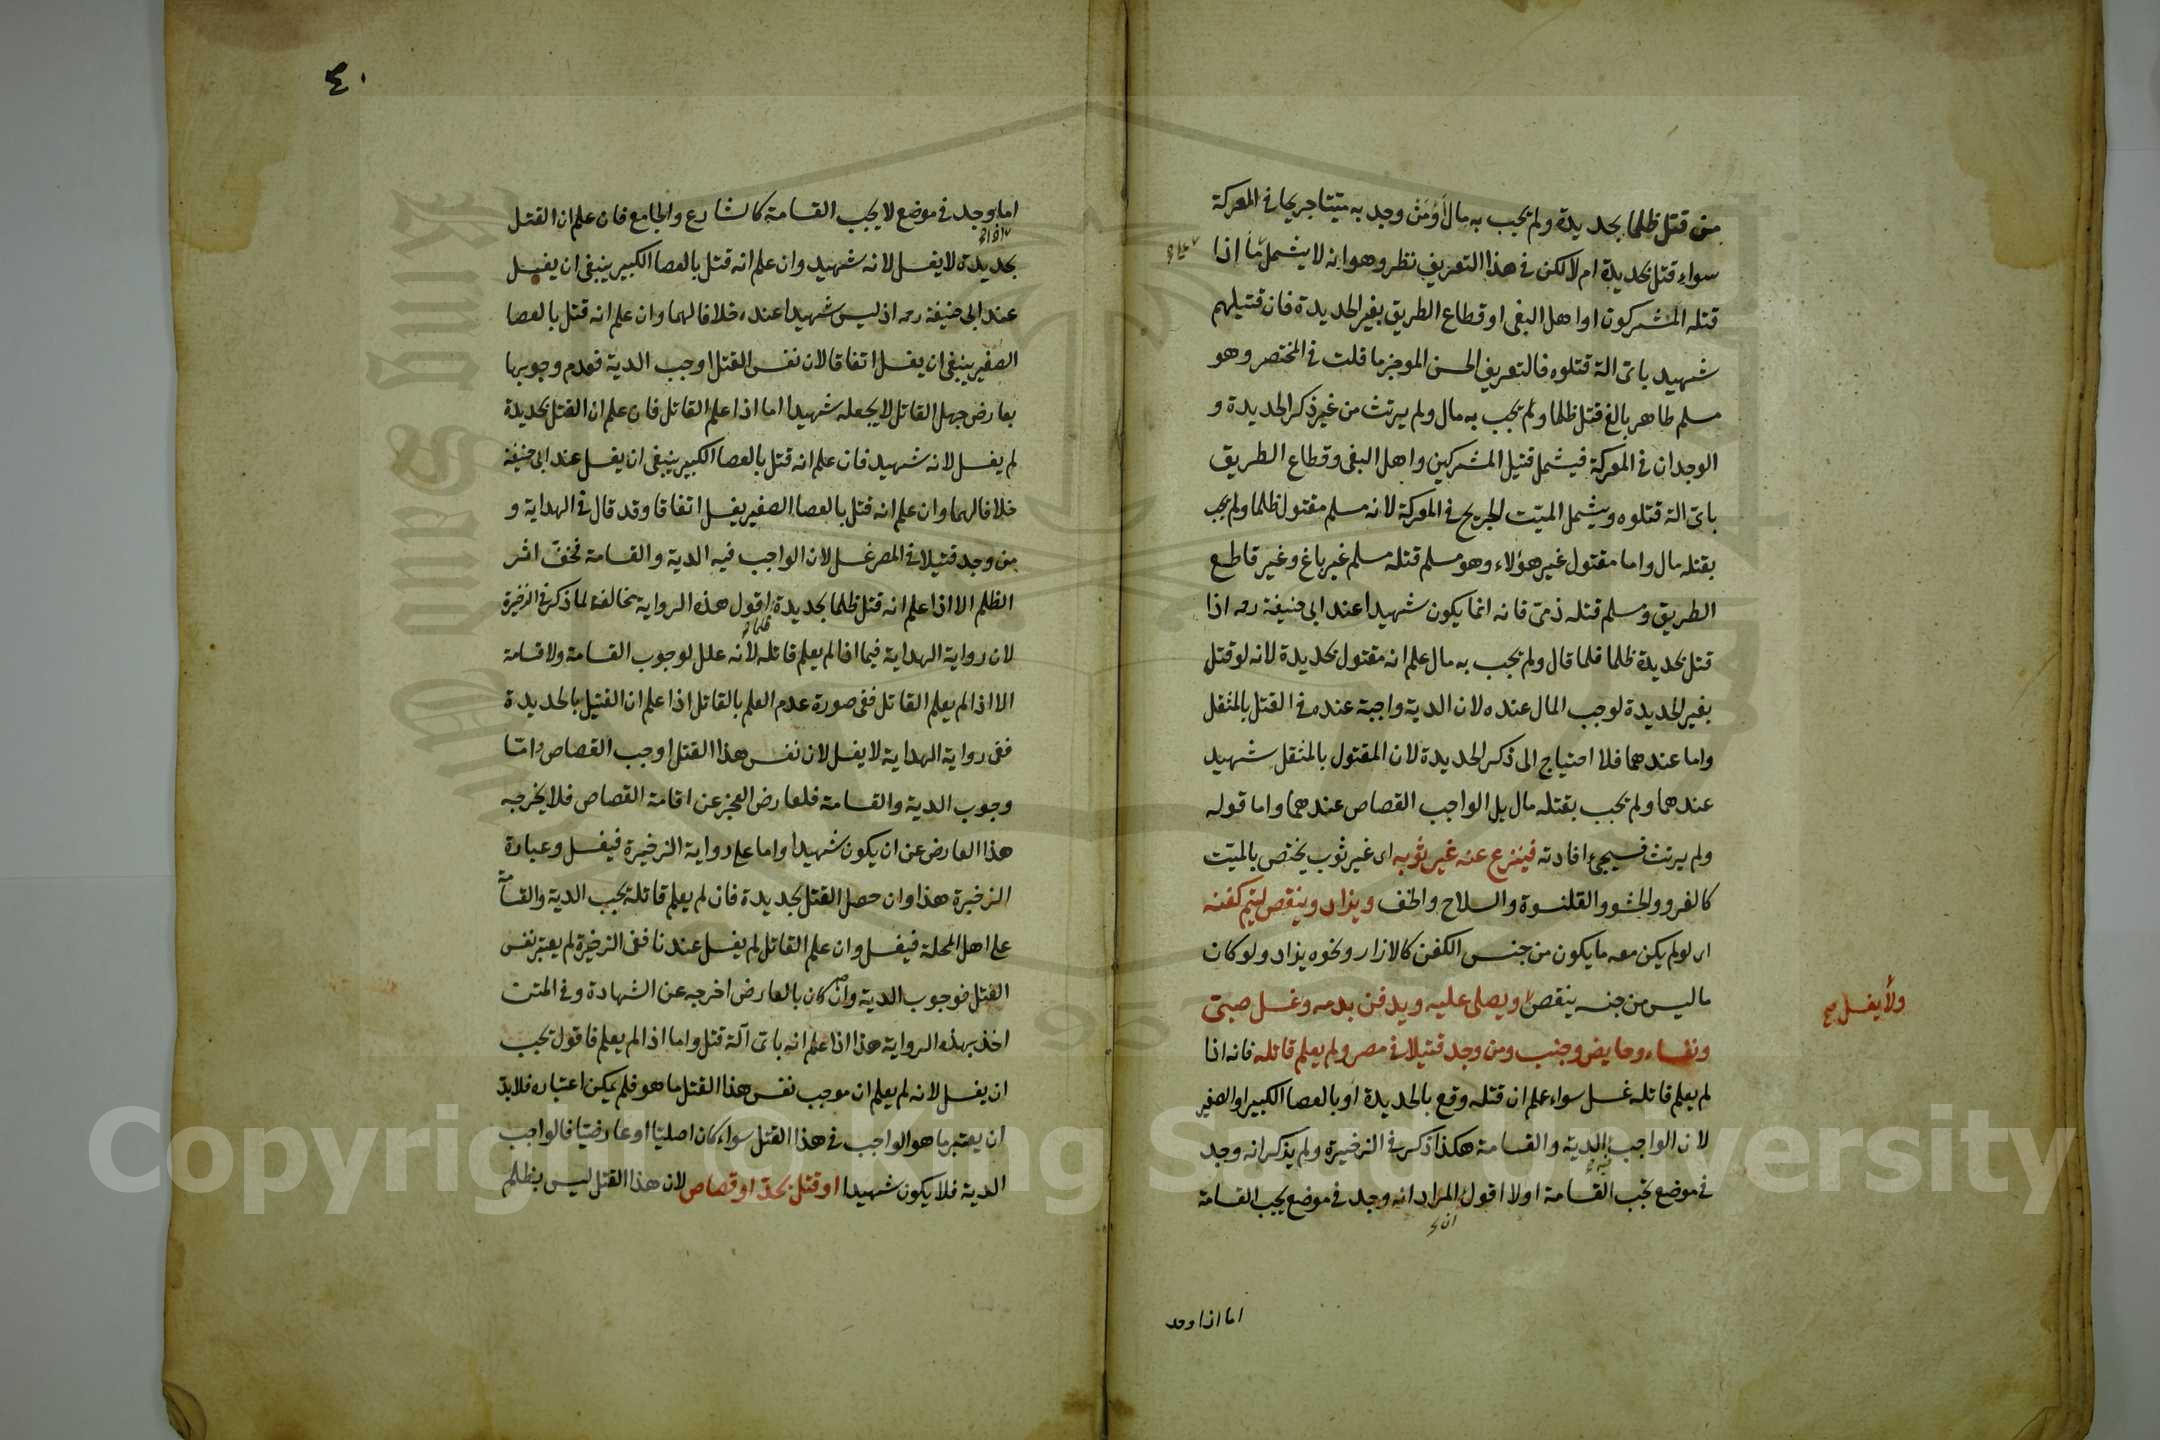 من قتل ظلما بحديدة ولم تجب به مال أو من وجد به ميتا جريحا في المعركة
سواء قتل بحديدة ام لا لكن في هذا التعريف نظر وهو انه لا يشمل ما اذا
قتله المشركون او اهل البغى او قطاع الطريق بغير الحديدة فان قتيلهم
شهيد باى الة قتلوه فالتعريف الحسن الموجز ما قلت في المختصر وهو
مسلم طاهر بالغ قتل ظلما ولم تجب به مال ولم يرتث من غير ذكر الحديدة و
الوجدان في المعركة فيشمل قتيل المشركين واهل البغى وقطاع الطريق
باى الة قتلوه ويشمل الميت الجريح في المعركة لانه مسلم مقتول ظلما ولم يجب
بقتله مال واما مقتول غير هؤلاء وهو مسلم قتله مسلم غير باغ وغير قاطع
الطريق ومسلم قتله ذمى فانه انما يكون شهيدا عند ابى حنيفة رحه اذا
قتل بحديدة ظلما فلما قال ولم تجب به مال علم انه مقتول بحديدة لانه لو قتل
بغير الحديدة لوجب المال عنده لان الدية واجبة عنده في القتل بالمثقل
واما عندهما فلا احتياج الى ذكر الحديدة لان المقتول بالمثقل شهيد
عندهما ولم تجب بقتله مال بل الواجب القصاص عندهما واما قوله
ولم يرتث فسيجئ افادته فينزع عنه غير ثوبه اى غير ثوب يختص بالميت
كالفرو والحشو والقلنسوة والسلاح والخف ويزاد وينقص ليتم كفنه
اى لو لم يكن معه ما يكون من جنس الكفن كالازار ونحوه يزاد ولو كان
ما ليس من جنسه ينقص ويصلى عليه ويدفن بدمه وغسل صبى
ولا يغسل صح
ونفساء وحايض وجنب ومن وجد قتيلا في مصر ولم يعلم قاتله فانه اذا
لم يعلم قاتله غسل سواء علم ان قتله وقع بالحديدة او بالعصا الكبير او الصغير
لان الواجب الدية والقسامة هكذا ذكر في الذخيرة ولم يذكر انه وجد
في موضع تجب القسامة اولا اقول المراد انه وجد في موضع يجب القسامة
اما اذا وجد
٤٠
اما وجد في موضع لا يجب القسامة كالشارع والجامع فان علم ان القتل
بحديدة لا يغسل لانه شهيد وان علم انه قتل بالعصا الكبير ينبغى ان يغسل
عند ابى حنيفة رحه اذ ليس شهيدا عنده خلافا لهما وان علم انه قتل بالعصا
الصغير ينبغى ان يغسل اتفاقا لان نفس القتل اوجب الدية فعدم وجوبها
بعارض جهل القاتل لا يجعله شهيدا اما اذا علم القاتل فان علم ان القتل بحديدة
لم يغسل لانه شهيد فان علم انه قتل بالعصا الكبير ينبغى ان يغسل عند ابى حنيفة
خلافا لهما وان علم انه قتل بالعصا الصغير يغسل اتفاقا وقد قال في الهداية و
من وجد قتيلا في المصر غسل لان الواجب فيه الدية والقسامة فخف اثر
الظلم الا اذا علم انه قتل ظلما بحديدة اقول هذه الرواية مخالفة لما ذكر في الذخيرة
لان رواية الهداية فيما اذا لم يعلم قاتله لانه علل لوجوب القسامة ولا قسامة
الا اذا لم يعلم القاتل ففى صورة عدم العلم بالقاتل اذا علم ان القتيل بالحديدة
ففى رواية الهداية لا يغسل لان نفس هذا القتل اوجب القصاص واما
وجوب الدية والقسامة فلعارض العجز عن اقامة القصاص فلا يخرجه
هذا العارض عن ان يكون شهيدا واما على رواية الذخيرة فيغسل وعبارة
الذخيرة هذا وان حصل القتل بحديدة فان لم يعلم قاتله تجب الدية والقسامة
على اهل المحلة فيغسل وان علم القاتل لم يغسل عندنا ففى الذخيرة لم يعتبر نفس
القتل فوجوب الدية وان كان بالعارض اخرجه عن الشهادة وفي المتن
اخذ بهذه الرواية هذا اذا علم انه باى آلة قتل واما اذا لم يعلم فاقول تجب
ان يغسل لانه لم يعلم ان موجب نفس هذا القتل ما هو فلم يمكن اعتباره فلا بد
ان يعتبر ما هو الواجب في هذا القتل سواء كان اصليا او عارضيا فالواجب
الدية فلا يكون شهيدا او قتل بحد او قصاص لان هذا القتل ليس بظلم
Copyright © King Saud University